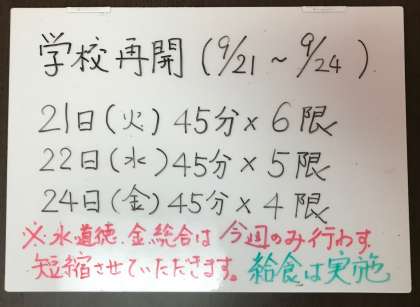 学校再開(9/21～9/24)
21日(火)45分×6限
22日(水)45分×5限
24日(金)45分×4限
※水道徳.金総合は今週のみ行わず
短縮させていただきます。給食は実施